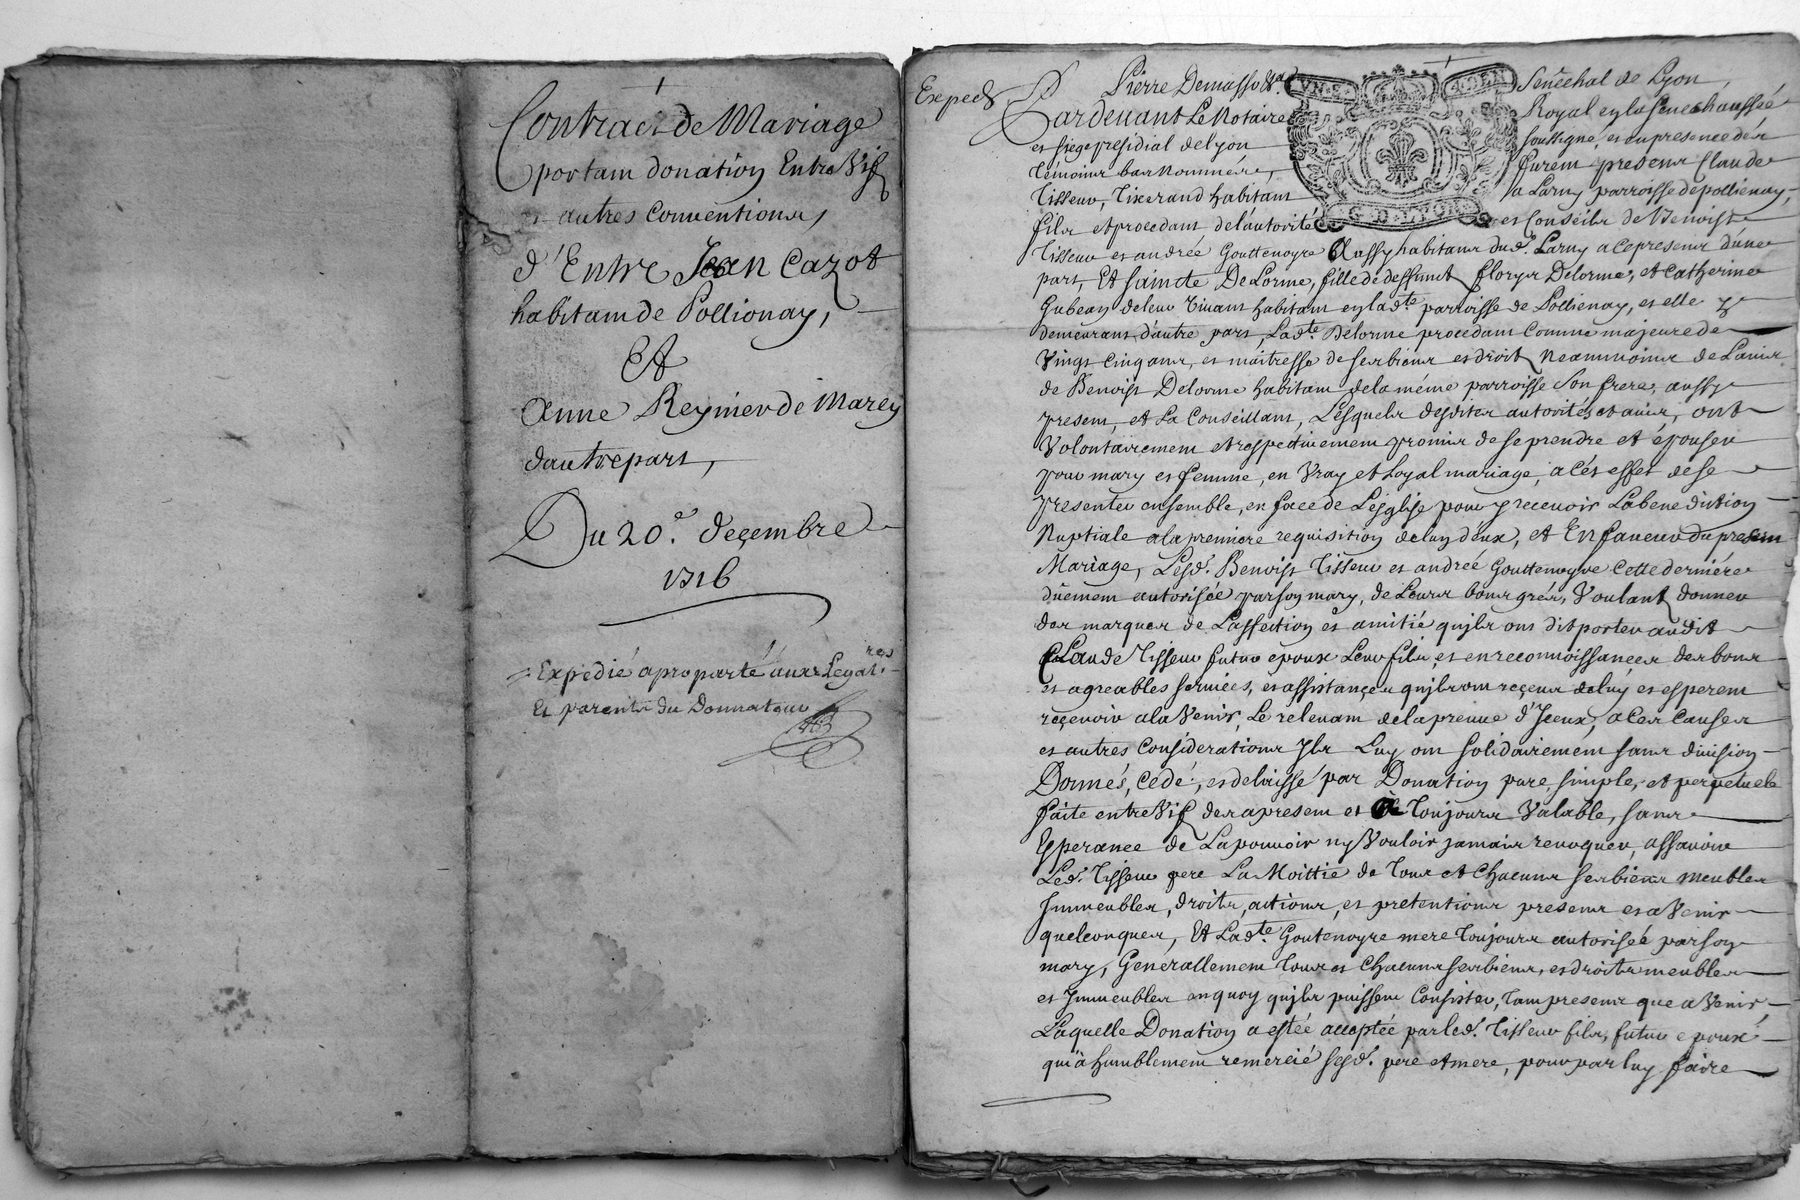 Contract de Mariage
portant donation Entre Vifs
et autres Conventions,
d'Entre Jean Cazot
habitant de Pollionay,
Et
Anne Reynier de Marcy
dautre part,
Du 20.e decembre
1716
Expedié a proparté aux Legat.res
Et parents du Donnateur
Exped.
Pierre Demasso &a. Senechal de Lyon
Pardevant Le Notaire Royal en la senechaussée
et siege presidial de Lyon soussigné, et en presence des
témoins bas nommés, furent presens Claude
Tisseur, Tixerand habitant a Larny parroisse de pollienay,
fils et procedant de l'autorité et Conseils de Benoist
Tisseur et andrée Gouttenoyre Aussy habitans dud. Larny a ce presens d'une
part, Et saincte DeLorme, fille de deffunct florys Delorme, et Catherine
Gubean de leur vivant habitans en lad.te parroisse de Pollienay, et elle y
demeurans d'autre part, Lad.te Delorme procedant Comme majeure de
Vingt Cinq ans, et maitresse de ses biens et droits Neammoins de L'avis
de Benoist Delorme habitant de la même parroisse Son frere, aussy
present, et La Conseillant, Lesquels desdites autorités et avis, ont
Volontairement et respectivement promis de se prendre et épouser
pour mary et femme, en Vray et Loyal mariage, a cés effet de se
presenter ensemble, en face de L'esglise pour y recevoir La benediction
Nuptiale a la premiere requisition de l'un d'eux, et En faveur du present
Mariage, Lesd. Benoist Tisseur et andreé Gouttenoyre Cette derniére
düement autorisée par son mary, de Leurs bons grés, Voulant donner
des marques de L'affection et amitié qu'ils ont dit porter audit
Claude Tisseur futur epoux Leur fils, et en reconnoissances des bons
et agreables services, et assistances qu'ils ont reçeus de luy et esperent
reçevoir a la Venir, Le relevant de la preuve d'Iceux, a Ces Causes
et autres Considerations Ils Luy ont solidairement sans division
Donnés, Cedé, et delaissé par Donation pure, simple, et perpetuele
faite entre Vifs des a present et a Toujours Valable, sans
Esperance de La pouvoir ny Vouloir jamais revoquer, assavoir
Led. Tisseur pere La Moittié de Tous et Chacuns ses biens meubles
Immeubles, droits, actions, et pretentions presens et a Venir
quelconques, Et Lad.te Goutenoyre mere toujours autorisée par son
mary, Generallement Tous et Chacuns ses biens, et droits meubles
et Immeubles en quoy qu'ils puissent Consister, tant presens que a Venir,
Laquelle Donation a estée acceptée par led. Tisseur fils, futur epoux
qui a humblement remercié sesd. pere et mere, pour par luy faire